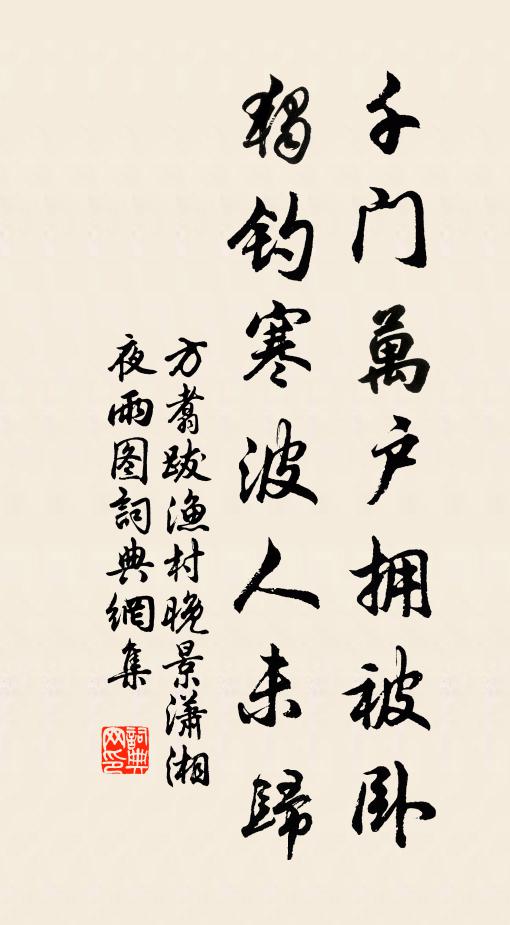 千门萬户拥被卧
獨钓寒波人未歸
方翥跋漁村晚景瀟湘
夜雨图詞典網集
詞典网印